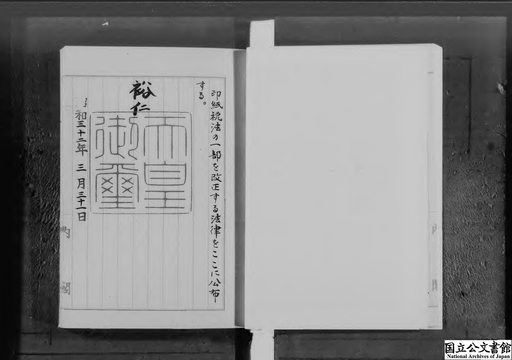 印紙税法の一部を改正する法律をここに公布
する。
裕仁
天皇
御璽
和三十二年三月三十一日
内閣
国立公文書館
National Archives of Japan